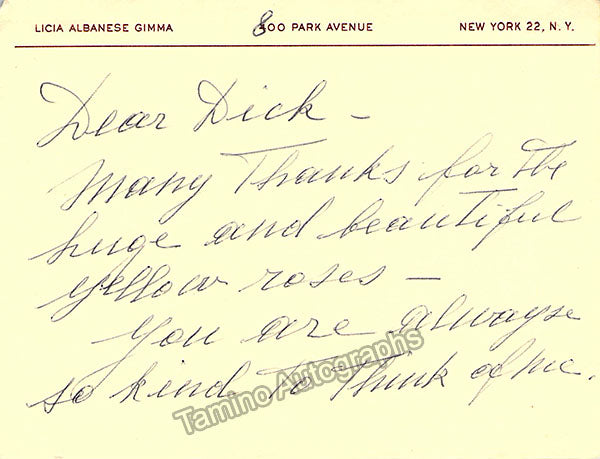 LICIA ALBANESE GIMMA 800 PARK AVENUE NEW YORK 22, N. Y.
Dear Dick -
Many Thanks for The
huge and beautiful
yellow roses -
You are always
so kind To Think of me.
Tamino Autographs